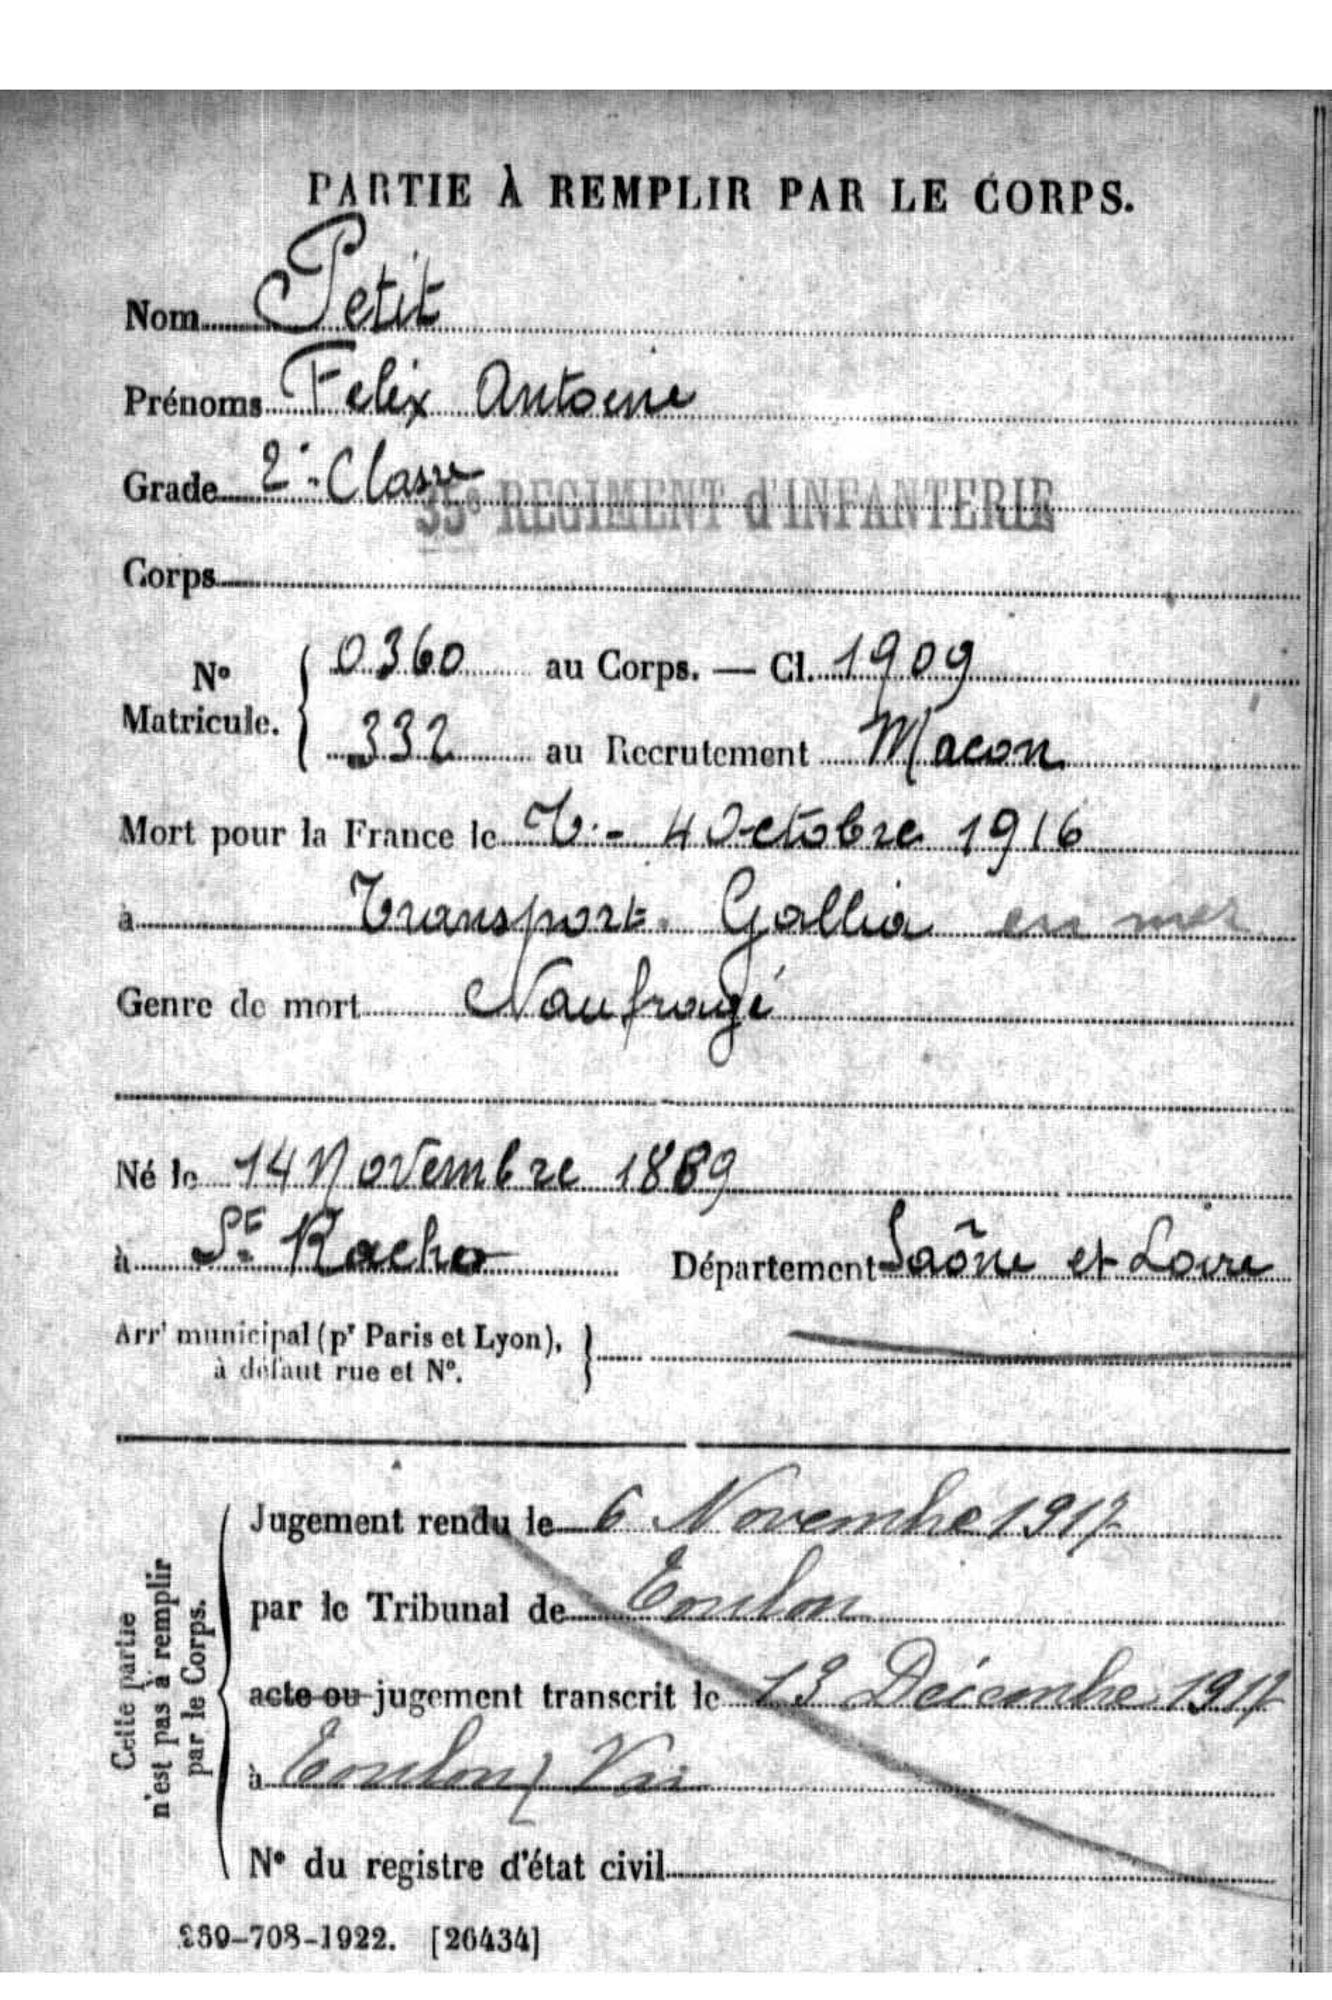 PARTIE À REMPLIR PAR LE CORPS.
Nom Petit
Prénoms Felix Antoine
Grade 2e Classe
35e REGIMENT d'INFANTERIE
Corps
No Matricule. { 0360 au Corps. — Cl. 1909
332 au Recrutement Macon
Mort pour la France le 4 Octobre 1916
à Transport. Gallia en mer
Genre de mort Naufragé
Né le 14 Novembre 1889
à St Racho Département Saône et Loire
Arrt municipal (pr Paris et Lyon), à défaut rue et No. }
Cette partie n'est pas à remplir par le Corps.
Jugement rendu le 6 Novembre 1917
par le Tribunal de Toulon
acte ou jugement transcrit le 13 Décembre 1917
à Toulon / Var
No du registre d'état civil
-708-1922. [26434]